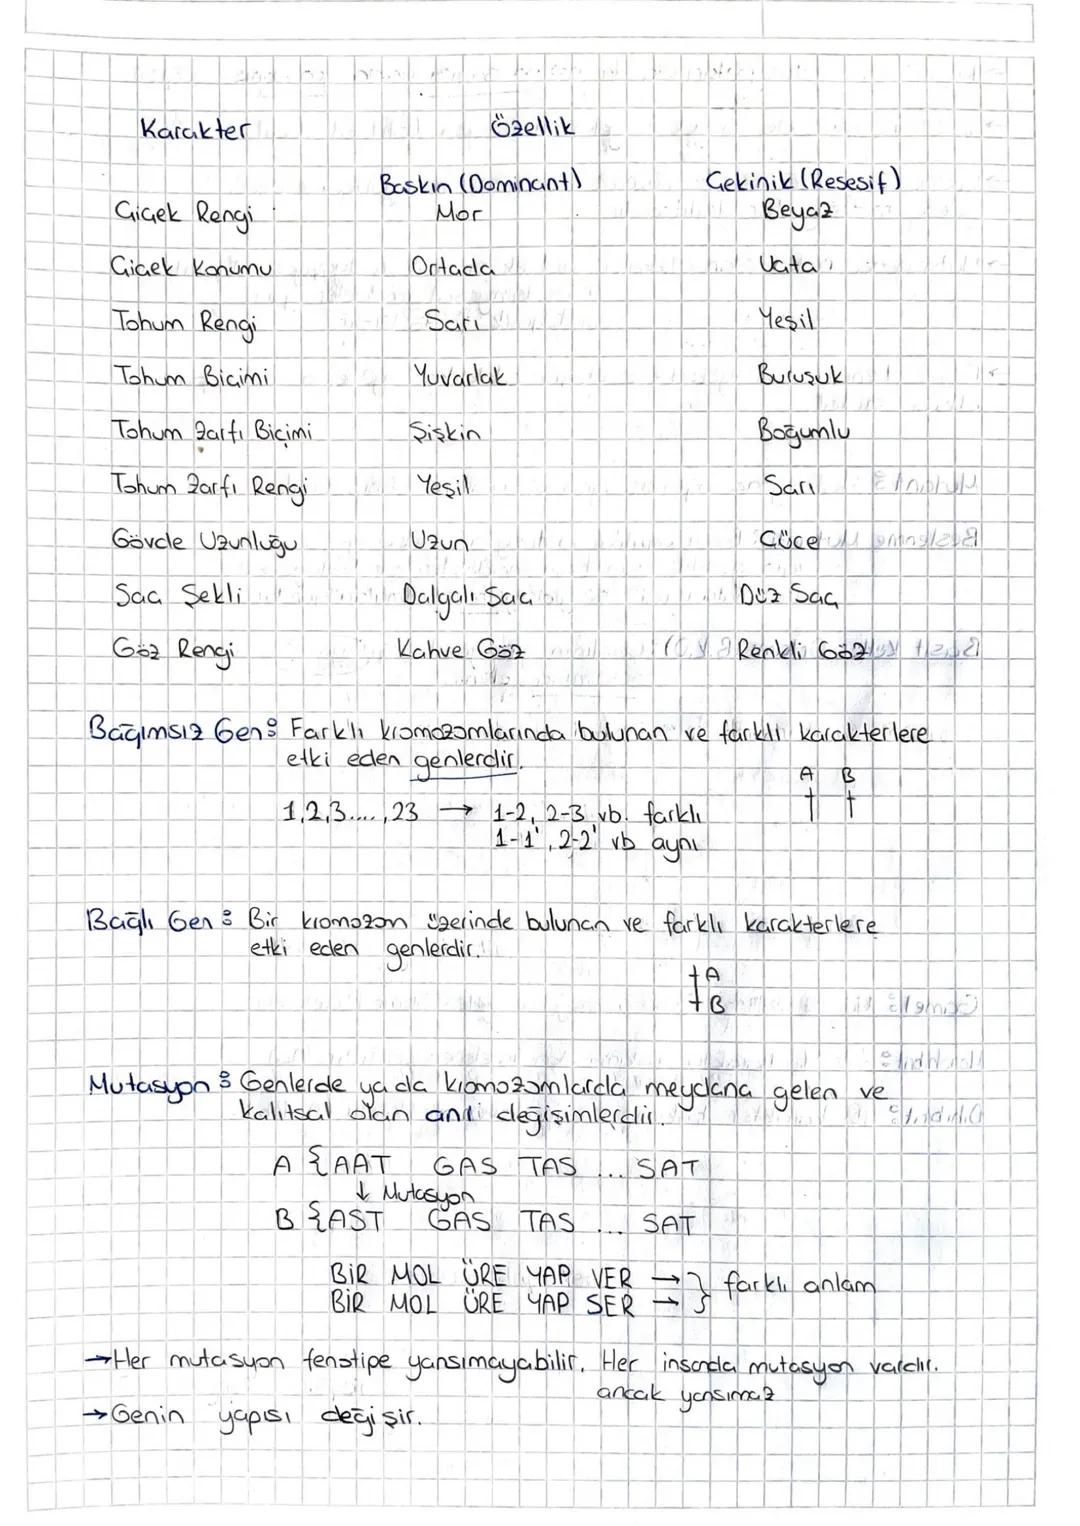 Karakter Özellik
Baskın (Dominant) Çekinik (Resesif)
Çiçek Rengi Mor Beyaz
Çiçek Konumu Ortada Uçta
Tohum Rengi Sarı Yeşil
Tohum Biçimi Yuvarlak Buruşuk
Tohum Zarfı Biçimi Şişkin Boğumlu
Tohum Zarfı Rengi Yeşil Sarı
Gövde Uzunluğu Uzun Cüce
Saç Şekli Dalgalı Saç Düz Saç
Göz Rengi Kahve Göz Renkli Göz
Bağımsız Gen: Farklı kromozomlarında bulunan ve farklı karakterlere
etki eden genlerdir.
A B
1,2,3....,23 → 1-2, 2-3 vb. farklı
1-1', 2-2' vb aynı
Bağlı Gen: Bir kromozon üzerinde bulunan ve farklı karakterlere
etki eden genlerdir.
A
B
Mutasyon: Genlerde ya da kromozomlarda meydana gelen ve
kalıtsal olan ani değişimlerdir.
A {AAT GAS TAS ... SAT
↓ Mutasyon
B {AST GAS TAS ... SAT
BİR MOL ÜRE YAP VER → } farklı anlam
BİR MOL ÜRE YAP SER → }
→Her mutasyon fenotipe yansımayabilir. Her insanda mutasyon vardır.
ancak yansımaz
→Genin yapısı değişir.